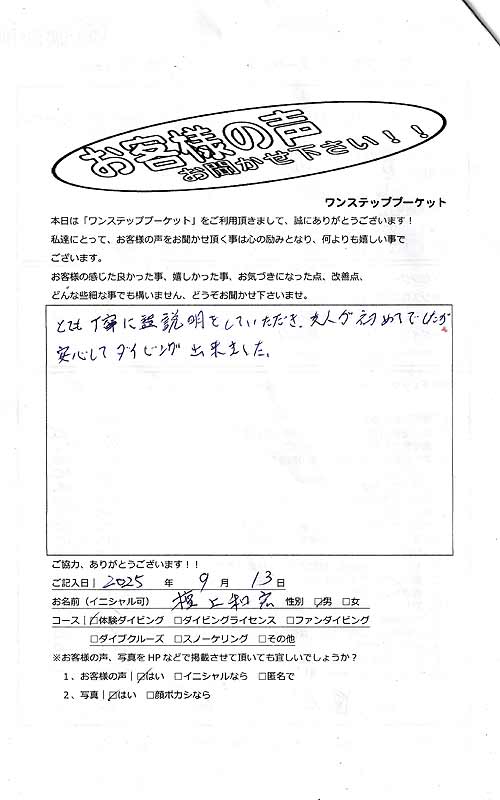 お客様の声
お聞かせ下さい！！
ワンステッププーケット
本日は「ワンステッププーケット」をご利用頂きまして、誠にありがとうございます！
私達にとって、お客様の声をお聞かせ頂く事は心の励みとなり、何よりも嬉しい事で
ございます。
お客様の感じた良かった事、嬉しかった事、お気づきになった点、改善点、
どんな些細な事でも構いません、どうぞお聞かせ下さいませ。
とても丁寧に説明をしていただき、夫人が初めてでしたが
安心してダイビング出来ました。
ご協力、ありがとうございます！！
ご記入日| 2025 年 9 月 13 日
お名前（イニシャル可） 上和宏 性別 ☑男 □女
コース| ☑体験ダイビング □ダイビングライセンス □ファンダイビング
□ダイブクルーズ □スノーケリング □その他
※お客様の声、写真をHPなどで掲載させて頂いても宜しいでしょうか？
１、お客様の声| ☑はい □イニシャルなら □匿名で
２、写真| ☑はい □顔ボカシなら